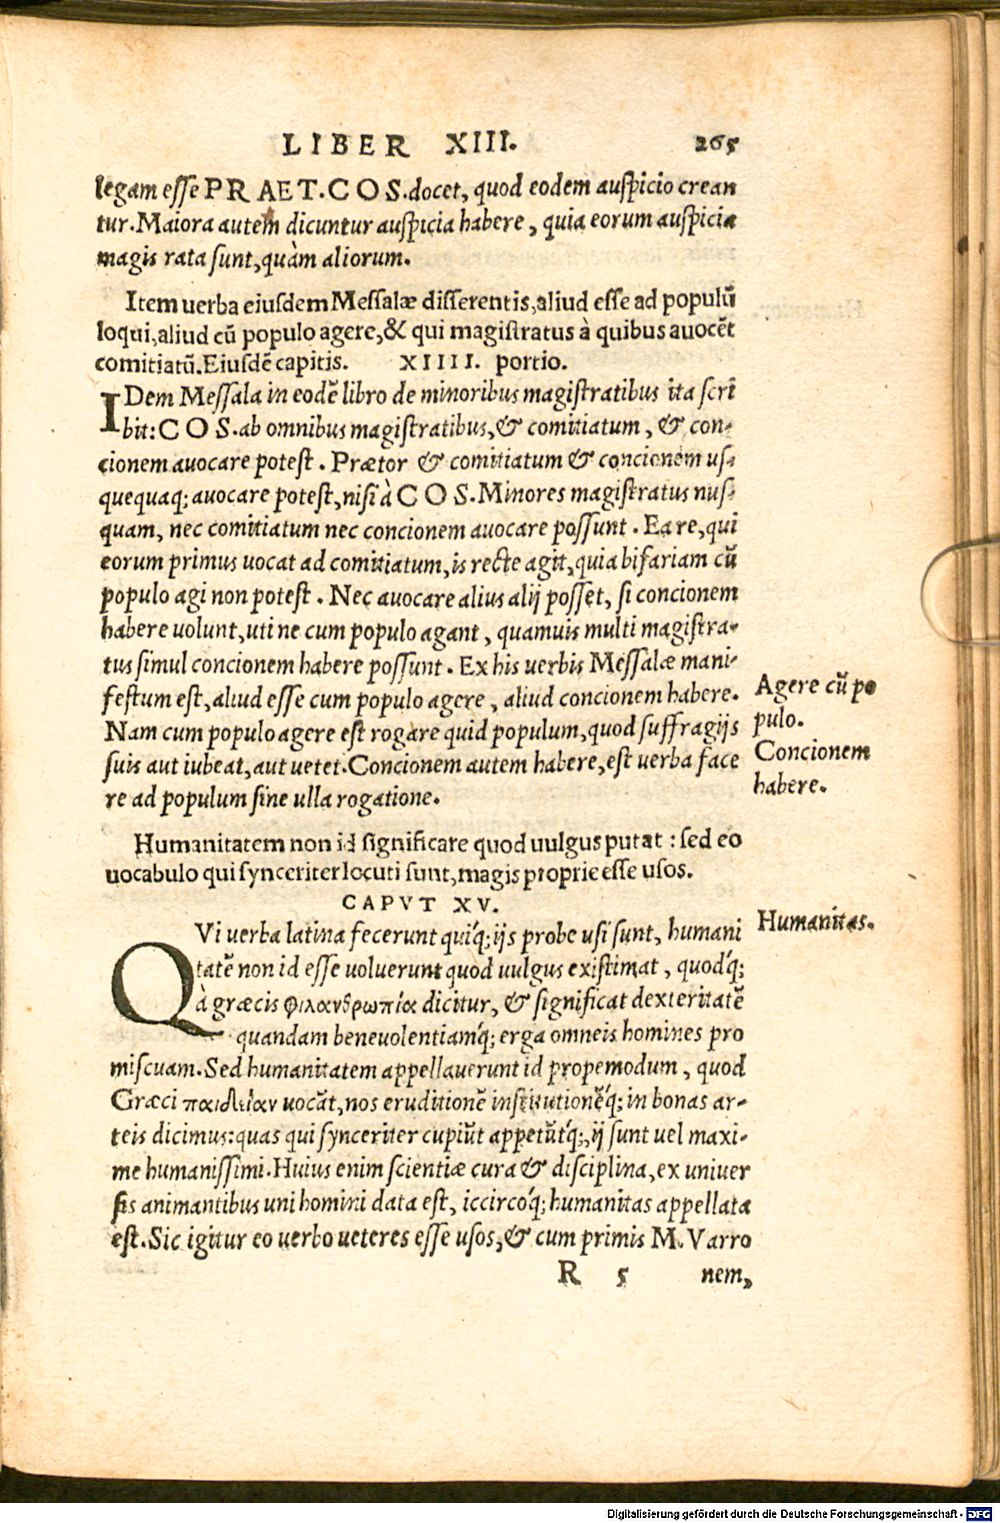 LIBER XIII. 265
legam esse PRAET. COS. docet, quod eodem auspicio crean
tur. Maiora autem dicuntur auspicia habere, quia eorum auspicia
magis rata sunt, quàm aliorum.
Item uerba eiusdem Messalæ disserentis, aliud esse ad populũ
loqui, aliud cũ populo agere, & qui magistratus à quibus auocẽt
comitiatũ. Eiusdẽ capitis. XIIII. portio.
IDem Messala in eodẽ libro de minoribus magistratibus ita scri
bit: COS. ab omnibus magistratibus, & comitiatum, & con-
cionem auocare potest. Prætor & comitiatum & concionem us-
quequaq; auocare potest, nisi à COS. Minores magistratus nus-
quam, nec comitiatum nec concionem auocare possunt. Ea re, qui
eorum primus uocat ad comitiatum, is recte agit, quia bifariam cũ
populo agi non potest. Nec auocare alius alij posset, si concionem
habere uolunt, uti ne cum populo agant, quamuis multi magistra-
tus simul concionem habere possunt. Ex his uerbis Messalæ mani-
festum est, aliud esse cum populo agere, aliud concionem habere.
Nam cum populo agere est rogare quid populum, quod suffragijs
suis aut iubeat, aut uetet. Concionem autem habere, est uerba face
re ad populum sine ulla rogatione.
Agere cũ po
pulo.
Concionem
habere.
Humanitatem non id significare quod uulgus putat: sed eo
uocabulo qui synceriter locuti sunt, magis proprie esse usos.
CAPVT XV.
QVi uerba latina fecerunt quiq́; ijs probe usi sunt, humani
tatẽ non id esse uoluerunt quod uulgus existimat, quodq́;
à græcis φιλανθρωπία dicitur, & significat dexteritatẽ
quandam beneuolentiamq́; erga omneis homines pro
miscuam. Sed humanitatem appellauerunt id propemodum, quod
Græci παιδείαν uocãt, nos eruditionẽ institutionẽq́; in bonas ar-
teis dicimus: quas qui synceriter cupiũt appetũtq́;, ij sunt uel maxi-
me humanissimi. Huius enim scientiæ cura & disciplina, ex uniuer
sis animantibus uni homini data est, iccircoq́; humanitas appellata
est. Sic igitur eo uerbo ueteres esse usos, & cum primis M. Varro
Humanitas.
R 5 nem,
Digitalisierung gefördert durch die Deutsche Forschungsgemeinschaft - DFG